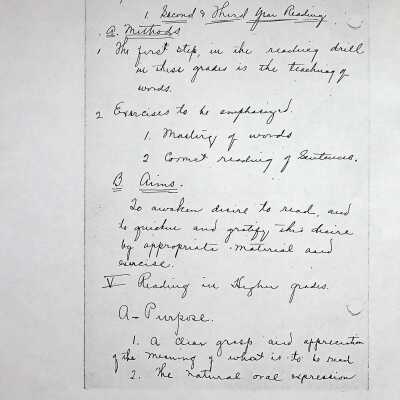 1. Second & Third Year Reading
A. Methods
1 The first step, in the reading drill
in these grades is the teaching of
words.
2 Exercises to be emphasized.
1. Mastery of words
2 Correct reading of Sentences.
B Aims.
To awaken desire to read, and
to quicken and gratify this desire
by appropriate material and
exercise.
V Reading in Higher grades.
A - Purpose.
1. A clear grasp and appreciation
of the meaning of what is to be read
2. The natural oral expression